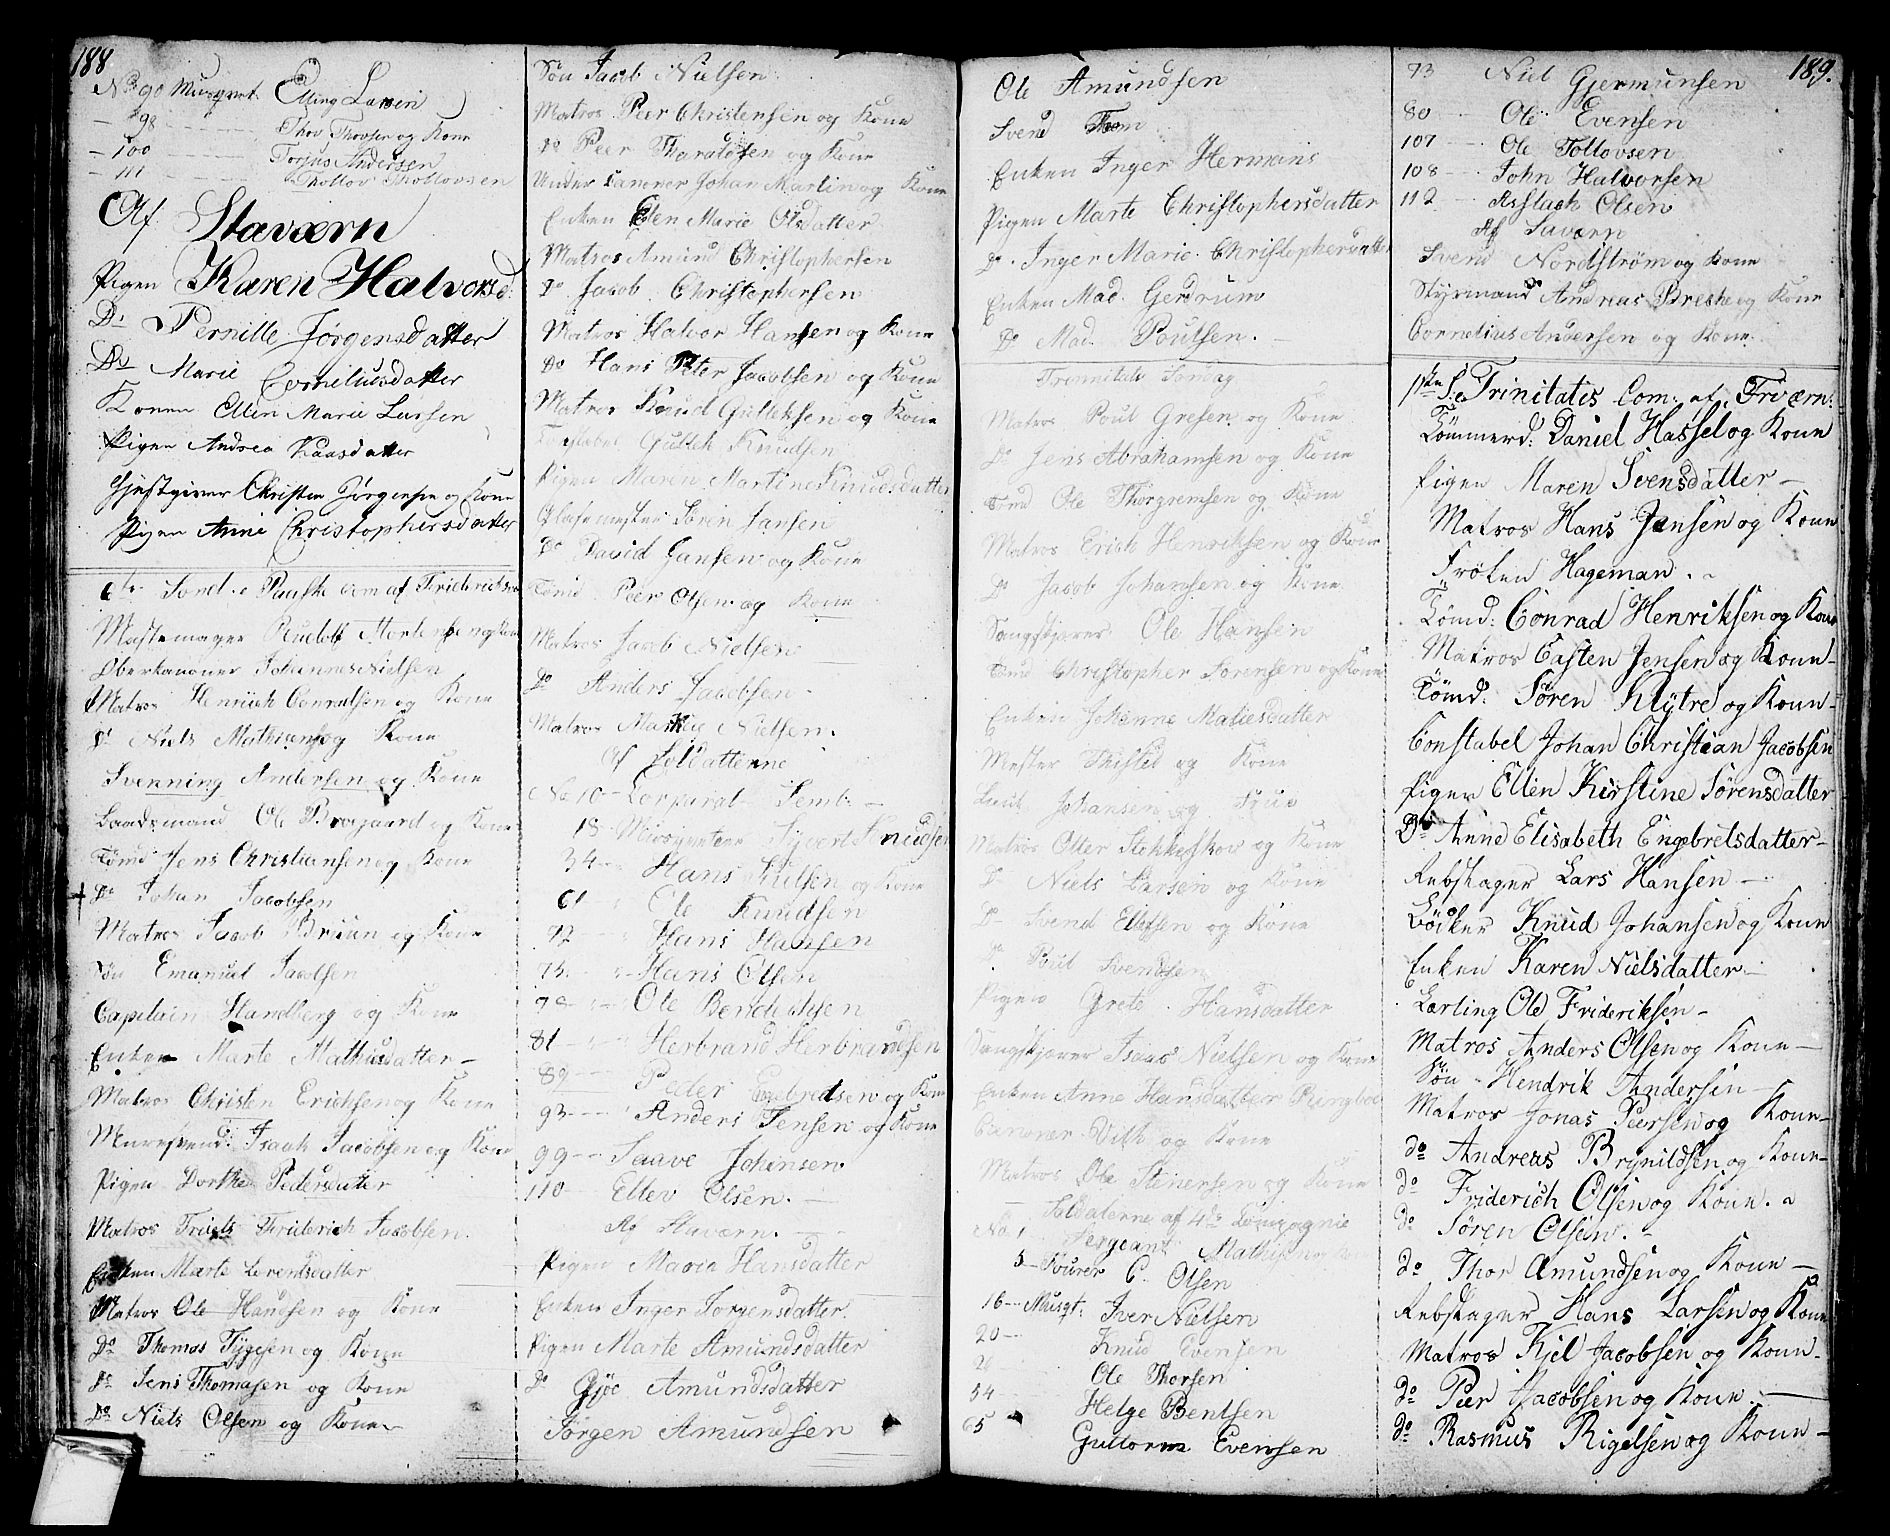 188
No 90 Musqvet. Elling Larsen
— 98 Thov Thovsen og Kone
— 100 Torjus Andersen
— 111 Thollov Thollovsen
Af Staværn
Pigen Karen Halvorsd:
Do Pernille Jørgensdatter
Do Marie Corneliusdatter
Konen Ellen Marie Larsen
Pigen Andrea Kaasdatter
Gjestgiver Christen Jørgensen og Kone
Pigen Anne Christophersdatter
6te Sond. e Paaske Com af Friderichsv
Mastemager Rudolf
Oberkanoner Johannes Nielsen
Matros Henrich Conradsen og Kone
Do Niels Mathiasen og Kone
Svenning Andersen og Kone
Baadsmand Ole Brogaard og Kone
Tømd Jens Christiansen og Kone
Do Johan Jacobsen
Matros Jacob Bruun og Kone
Søn Emanuel Jacobsen
Capitain Standberg og Kone
Enken Marte Mathisdatter —
Matros Christen Erichsen og Kone
Muresvend: Isaak Jacobsen og Kone
Pigen Dorthe Pedersdatter
Matros Friderich Jacobsen.
Enken Marte Berentsdatter
Matros Ole Knudsen og Kone
Do Thomas Tygesen og Kone
Do Jens Thomasen og Kone
Do Niels Olsen og Kone —
Søn Jacob Nielsen
Matros Peer Christensen og Kone
Do Peer Tharaldsen og Kone
Under Canoner Johan Martin og Kone
Enken Elen Marie Olsdatter
Matros Amund Christophersen
Do Jacob Christophersen
Matros Halvor Hansen og Kone
Do Hans Peter Jacobsen og Kone
Matros Knud Gulleksen og Kone
Constabel Gullek Knudsen
Pigen Maren Martine Knudsdatter
Glasemester Søren Jansen
Do David Jansen og Kone
Tømd. Peer Olsen og Kone
Matros Jacob Nielsen
Do Anders Jacobsen
Matros Nielsen.
Af Soldatterne
No 10 — Corporal Semb —
18 Musqveteer Syvert Knudsen
34 — Hans og Kone
61 Ole Knudsen
72 Hans Hansen
75 Hans Olsen
78 Ole Berthelsen
81 — Herbrand Herbrandsen
89 — Peder Engebredsen og Kone
93 — Anders Jensen og Kone
99 — Saave Johnsen
110 — Ellev Olsen. —
Af Staværn. —
Pigen Maria Hansdatter
Enken Inger Jørgensdatter
Pigen Marte Amundsdatter
Do Gjøe Amundsdatter
Jørgen Amundsen
Ole Amundsen
Svend
Enken Inger Hermans
Pigen Marte Christophersdatter
Do. Inger Marie Christophersdatter
Enken Mad. Gerdrum
Do Mad. Poulsen. —
Trinnitatis Søndag
Matros Poul Gresen og Kone
Do Jens Abrahamsen og Kone
Tømd Ole Thorgremsen og Kone
Matros Erich Henriksen og Kone
Do Jacob Johansen og Kone
Sangskjører Ole Hansen
Tømd Christopher Sørensen og Kone
Enken Johanne Matiesdatter
Mester Thisted og Kone
Lieut Johansen og Frue
Matros Otter Stokkeskov og Kone
Do Niels Larsen og Kone
Do Svend Ellefsen og Kone
Do Poul Svendsen
Pigen Grete Hansdatter
Sangskjører Isaac Nielsen og Kone
Enken Anne Hansdatter
Canoner Vith og Kone
Matros Ole Steners​en og Kone
Soldaterne af 4de Compagnie
No. 1 Sergeant Mathisen
5 — Fourer C. Olsen
16 — Musqt: Iver Nielsen
20 — Knud Evensen
26 Ole Thorsen
54 Helge Bentsen
65 Guttorm Evensen
189.
73 Niel Gjermunsen
80 Ole Evensen
107 Ole Tollovsen
108 — John Halvorsen
112 — Asslach Olsen
Af Staværn
Svend Nordstrøm og Kone
Styrmand Andreas Breske og Kone
Cornelius Andersen og Kone.
1ste S: e Trinitatis Com: af Friværn:
Tømmerd: Daniel Hassel og Kone
Pigen Maren Svensdatter —
Matros Hans Jensen og Kone
Frøken Hageman. —
Tømd: Conrad Henriksen og Kone
Matros Casten Jensen og Kone —
Tømd: Søren Klytre og Kone —
Constabel Johan Christian Jacobsen
Pigen Ellen Kirstine Sørensdatter
Do Anne Elisabeth Engebretsdatter —
Rebslager Lars Hansen —
Bødker Knud Johansen og Kone
Enken Karen Nielsdatter —
Lærling Ole Frideriksen —
Matros Anders Olsen og Kone —
Søn — Hendrik Andersen —
Matros Jonas Peersen og Kone —
do Andreas Brynildsen og Kone —
do Friderich Olsen og Kone.
do Søren Olsen. —
do Thor Amundsen og Kone —
Rebslager Hans Larsen og Kone
Matros Kjel Jacobsen og Kone —
do Peer Jacobsen og Kone. —
do Rasmus Rigelsen og Kone —